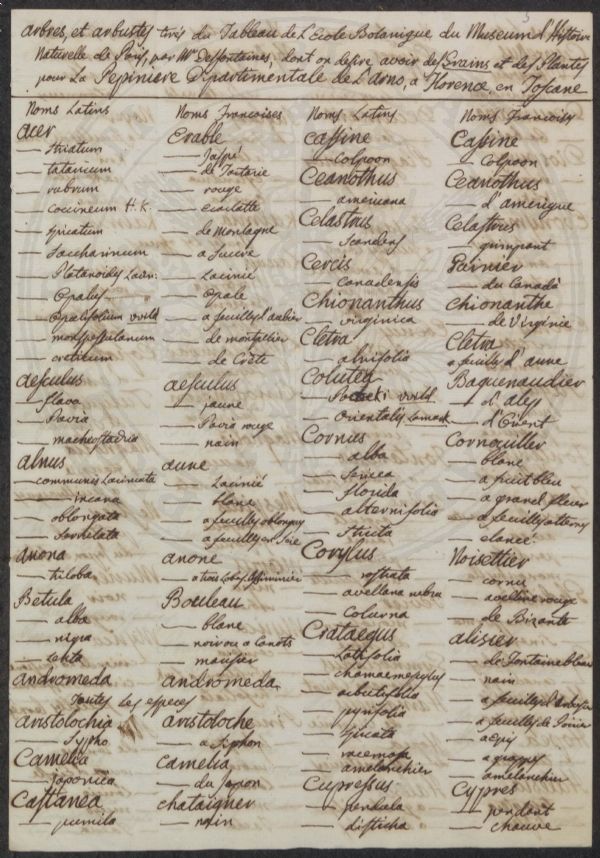 arbres, et arbustes tirés du Tableau de L'Ecole Botanique du Museum d'Histoire
Naturelle de Paris, par Mr Desfontaines, dont on desire avoir des Grains et des Plantes
pour La Pepiniere Departimentale de L'Arno, a Florence en Toscane
Noms Latins
acer
— striatum
— tataricum
— rubrum
— coccineum H.K.
— spicatum
— Saccharinum
— Platanoides Lacin.
— Opalus
— Opulifolium Willd
— monspessulanum
— creticum
aesculus
— flava
— Pavia
— machrostachia
alnus
— communis Laciniata
— incana
— oblongata
— serrulata
anona
— triloba
Betula
— alba
— nigra
— Lenta
andromeda
Toutes Les especes
aristolochia
— Sypho
Camelia
— japonica
Castanea
— pumila
Noms Francoises
Erable
— Jaspé
— de Tartarie
— rouge
— ecarlatte
— de Montagne
— a Sucre
— Lacinié
— Opale
— a feuilles d'aubier
— de montpellier
— de Crète
aesculus
— jaune
— Pavia rouge
— nain
aune
— Lacinié
— blanc
— a feuilles oblongues
— a feuilles en Scie
anone
— a trois Lobes
Bouleau
— blanc
— noir ou a Canots
— merisier
andromeda
aristoloche
— a Siphon
Camelia
— du Japon
chataigner
— nain
Noms Latins
Cassine
— Colpoon
Ceanothus
— americana
Celastrus
— Scandens
Cercis
— canadensis
Chionanthus
— virginica
Cletra
— alnifolia
Colutea
— Pocockii Willd.
— Orientalis Lamark
Cornus
— alba
— sericea
— florida
— alternifolia
— stricta
Corylus
— rostrata
— avellana rubra
— Colurna
Crataegus
— Latifolia
— chamaemespylus
— arbutifolia
— pyrifolia
— spicata
— racemosa
— amelanchier
Cupressus
— pendula
— disticha
Noms Francois
Cassine
— Colpoon
Ceanothus
— d'amerique
Celastrus
— grimpant
Gainier
— du Canada
Chionanthe
— de Virginie
Cletra
a feuilles d'aune
Baguenaudier
— d'alep
— d'Orient
Cornouiller
— blanc
— a fruit bleu
— a grand fleur
— a feuilles alternes
— elancé
Noisettier
— cornu
— aveline rouge
— de Bizante
alisier
— de Fontainebleau
— nain
— a feuilles d'arbousier
— a feuilles de Poirier
— a epis
— a grappes
— amelanchier
Cypres
— pendant
— chauve